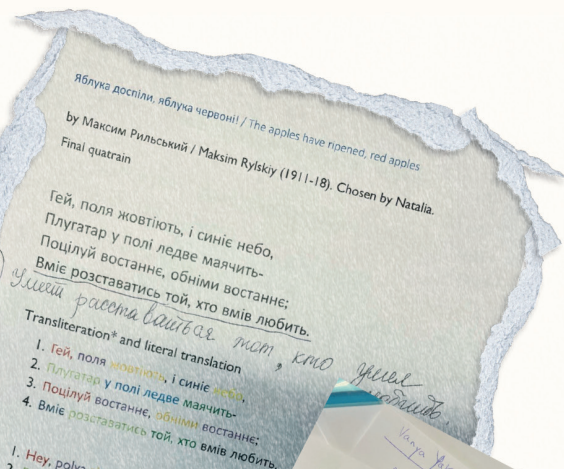 Яблука доспіли, яблука червоні! / The apples have ripened, red apples
by Максим Рильський / Maksim Rylskiy (1911-18). Chosen by Natalia.
Final quatrain
Гей, поля жовтіють, і синіє небо,
Плугатар у полі ледве маячить-
Поцілуй востаннє, обніми востаннє;
Вміє розставатись той, хто вмів любить.
Умеет расставаться тот, кто умел
любить.
Transliteration* and literal translation
1. Гей, поля жовтіють, і синіє небо,
2. Плугатар у полі ледве маячить-
3. Поцілуй востаннє, обніми востаннє;
4. Вміє розставатись той, хто вмів любить.
1. Hey, polya
Vanya